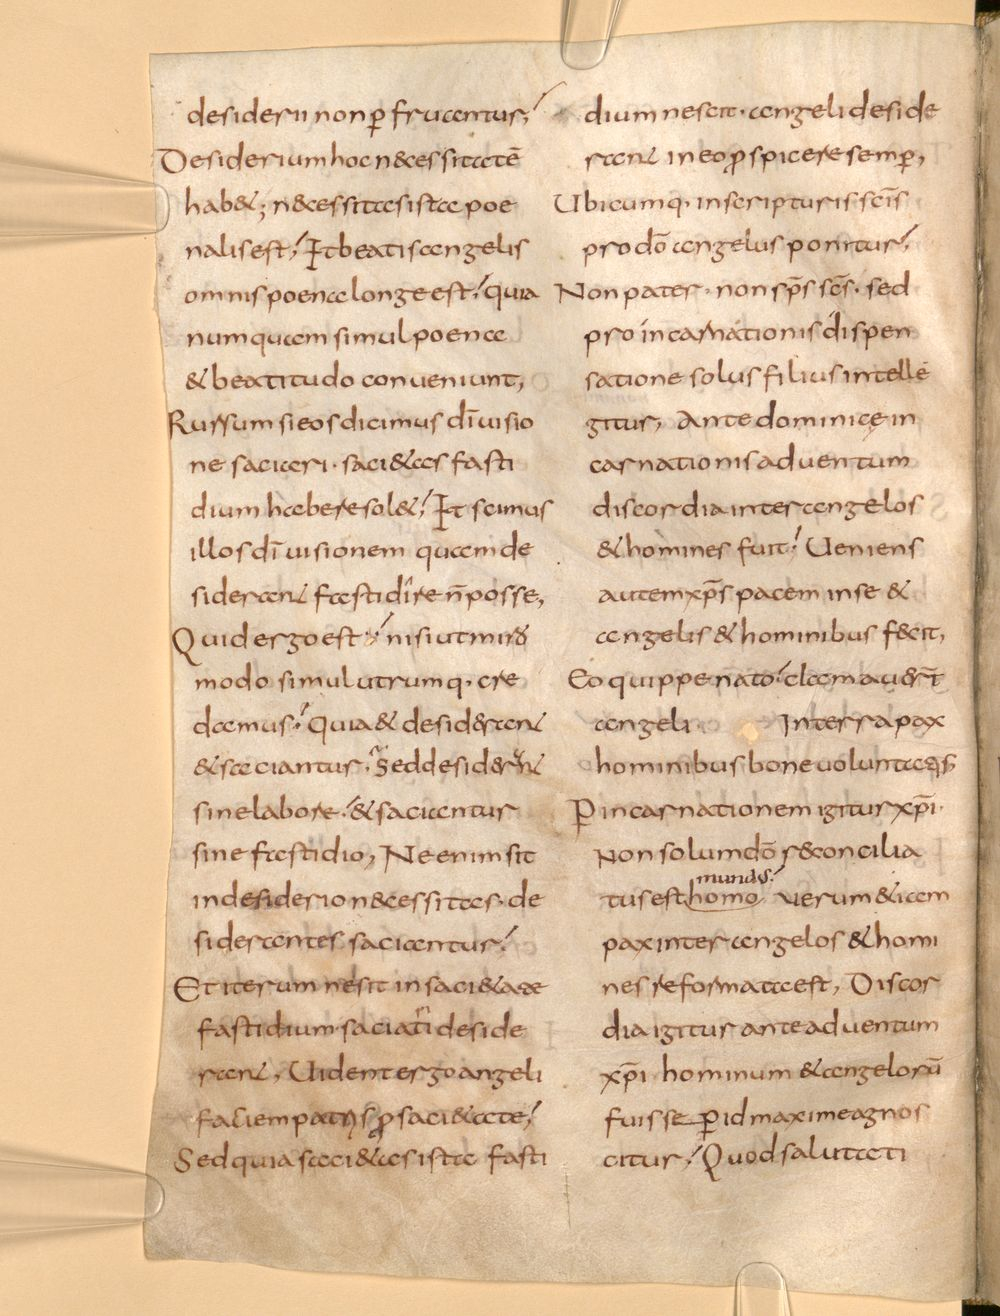 desiderii non ꝑ fruantur;
Desiderium hoc n&cessitatē
hab&; n&cessitas ista poe
nalis est; Et beatis angelis
omnis poena longe est; quia
numquam simul poena
& beatitudo conueniunt,
Rursum si eos dicimus dī uisio
ne saciari · saci&as fasti
dium habere sol&; Et scimus
illos dī uisionem quam de
siderant fastidire n̄ posse,
Quid ergo est; nisi ut miro
modo simul utrumq· cre
damus; Quia & desiderant
& saciantur · Sed desiderant
sine labore; & saciantur
sine fastidio, Ne enim sit
in desiderio n&cessitas · de
siderantes saciantur;
Et iterum ne sit in saci&ate
fastidium · saciati deside
rant, Uident ergo angeli
faciem patris ꝓ saci&ate;
Sed quia saci&as ista fasti
dium nescit · angeli deside
rant in eo ꝓspicere semꝑ,
Ubicumq· in scripturis scīs
pro dō angelus ponitur;
Non pater · non sp̄s scs̄ · sed
pro incarnationis dispen
satione solus filius intelle
gitur, Ante dominice in
carnationis aduentum
discordia inter angelos
& homines fuit; Ueniens
autem xp̄s pacem in se &
angelis & hominibus fecit,
Eo quippe nato; clamauer̄t
angeli In terra pax
hominibus bone uoluntatis
ꝑ incarnationem igitur xp̄i ·
Non solum dō r&concilia
mundus;
tus est homo uerum &iam
pax inter angelos & homi
nes reformata est, Discor
dia igitur ante aduentum
xp̄i hominum & angelorū
fuisse ꝑ id maxime agnos
citur; Quod salutati